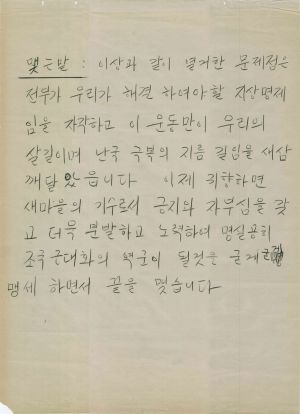 맺는말 : 이상과 같이 열거한 문제점은
전부가 우리가 해결 하여야할 지상명제
임을 자각하고 이 운동만이 우리의
살길이며 난국 극복의 지름 길임을 새삼
깨달았읍니다 이제 귀향하면
새마을의 기수로서 긍지와 자부심을 갖
고 더욱 분발하고 노력하여 명실공히
조국 근대화의 역군이 될것을 굳게
맹세 하면서 끝을 맺습니다